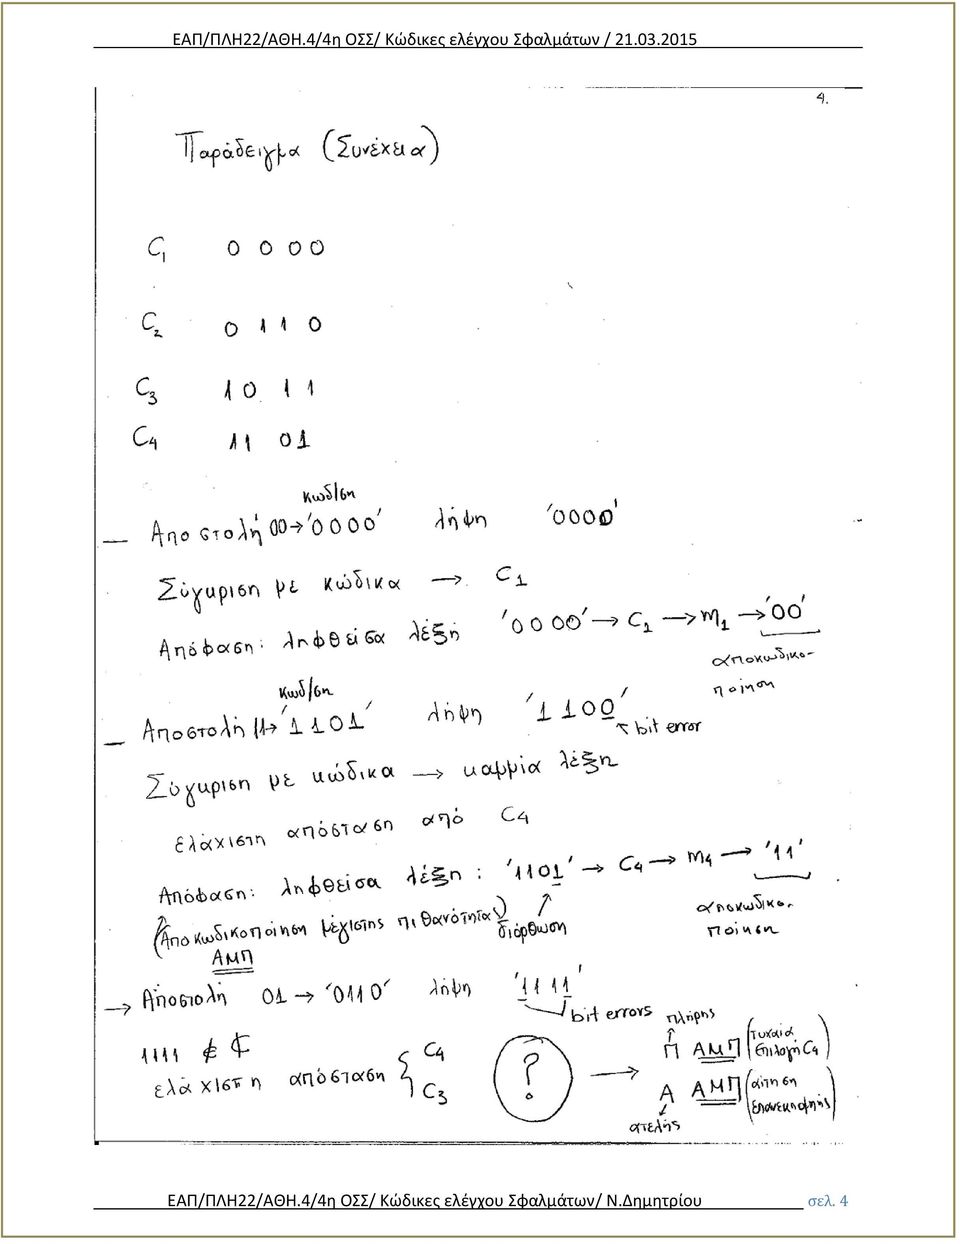 ΕΑΠ/ΠΛΗ22/ΑΘΗ.4/4η ΟΣΣ/ Κώδικες ελέγχου Σφαλμάτων / 21.03.2015
4.
Παράδειγμα (Συνέχεια)
C1 0 0 0 0
C2 0 1 1 0
C3 1 0 1 1
C4 1 1 0 1
κωδ/ση
— Αποστολή 00→'0000' λήψη '0000'
Σύγκριση με κώδικα → C1
Απόφαση: ληφθείσα λέξη '0000' → C1 → m1 → '00'
αποκωδικο-
ποίηση
κωδ/ση
— Αποστολή 11→'1101' λήψη '1100'
bit error
Σύγκριση με κώδικα → καμμία λέξη
ελάχιστη απόσταση από C4
Απόφαση: ληφθείσα λέξη : '1101' → C4 → m4 → '11'
αποκωδικο-
ποίηση
(Αποκωδικοποίηση μέγιστης πιθανότητας) διόρθωση
ΑΜΠ
→ Αποστολή 01 → '0110' λήψη '1111'
bit errors
πλήρης
1111 ∉ C
ελάχιστη απόσταση { C4 C3
?
→ Π ΑΜΠ (τυχαία επιλογή C4)
Α ΑΜΠ (αίτηση επανεκπομπής)
ατελής
ΕΑΠ/ΠΛΗ22/ΑΘΗ.4/4η ΟΣΣ/ Κώδικες ελέγχου Σφαλμάτων/ Ν.Δημητρίου σελ. 4